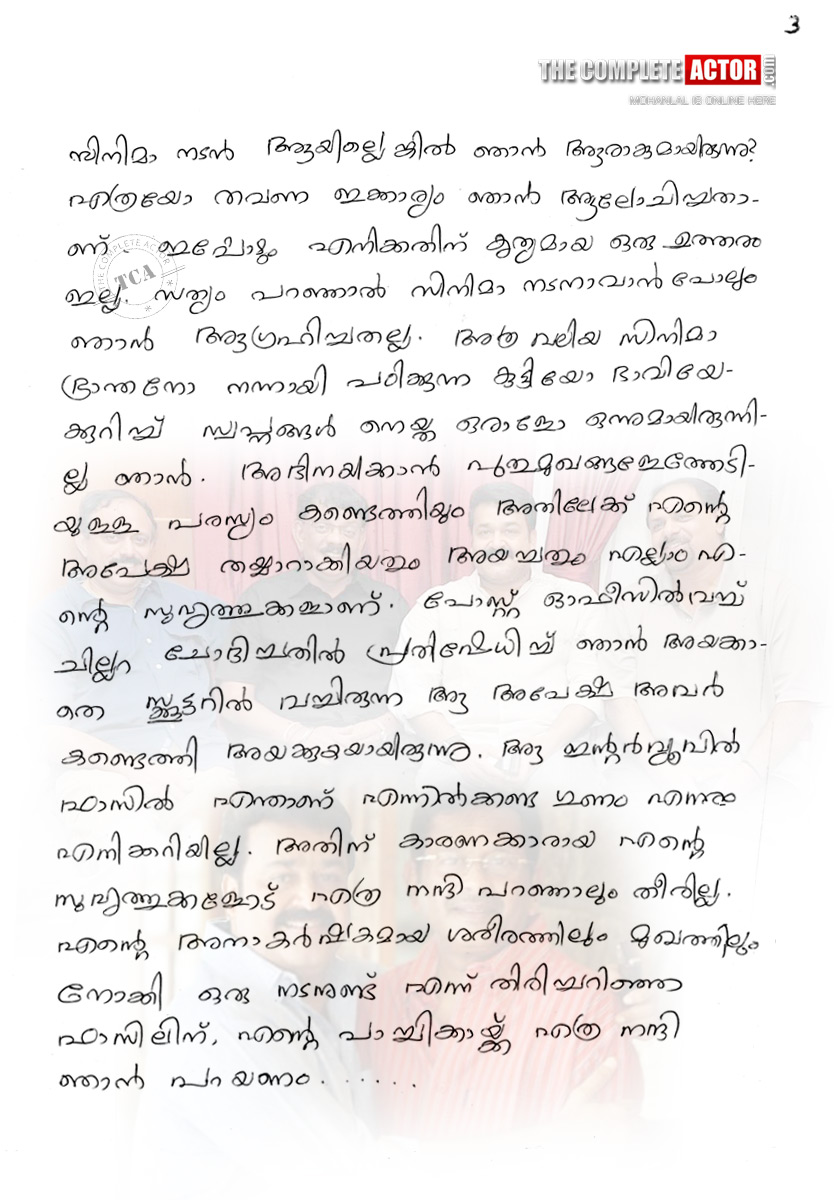 3
THE COMPLETE ACTOR .com
MOHANLAL IS ONLINE HERE
സിനിമാ നടൻ ആയില്ലെങ്കിൽ ഞാൻ ആരാകുമായിരുന്നു?
എത്രയോ തവണ ഇക്കാര്യം ഞാൻ ആലോചിച്ചതാ-
ണ്. ഇപ്പോഴും എനിക്കതിന് കൃത്യമായ ഒരു ഉത്തരം
THE COMPLETE ACTOR
TCA
ഇല്ല. സത്യം പറഞ്ഞാൽ സിനിമാ നടനാവാൻ പോലും
ഞാൻ ആഗ്രഹിച്ചതല്ല. അത്ര വലിയ സിനിമാ
ഭ്രാന്തനോ നന്നായി പഠിക്കുന്ന കുട്ടിയോ ഭാവിയേ-
ക്കുറിച്ച് സ്വപ്നങ്ങൾ നെയ്ത ഒരാളോ ഒന്നുമായിരുന്നി-
ല്ല ഞാൻ. അഭിനയിക്കാൻ പുതുമുഖങ്ങളെത്തേടി-
യുള്ള പരസ്യം കണ്ടെത്തിയും അതിലേക്ക് എന്റെ
അപേക്ഷ തയ്യാറാക്കിയതും അയച്ചതും എല്ലാം എ-
ന്റെ സുഹൃത്തുക്കളാണ്. പോസ്റ്റ് ഓഫീസിൽ വച്ച്
ചില്ലറ ചോദിച്ചതിൽ പ്രതിഷേധിച്ച് ഞാൻ അയക്കാ-
തെ സ്കൂട്ടറിൽ വച്ചിരുന്ന ആ അപേക്ഷ അവർ
കണ്ടെത്തി അയക്കുകയായിരുന്നു. ആ ഇന്റർവ്യൂവിൽ
ഫാസിൽ എന്താണ് എന്നിൽക്കണ്ട ഗുണം എന്നും
എനിക്കറിയില്ല. അതിന് കാരണക്കാരായ എന്റെ
സുഹൃത്തുക്കളോട് എത്ര നന്ദി പറഞ്ഞാലും തീരില്ല.
എന്റെ അനാകർഷകമായ ശരീരത്തിലും മുഖത്തിലും
നോക്കി ഒരു നടനുണ്ട് എന്ന് തിരിച്ചറിഞ്ഞ
ഫാസിലിന്, എന്റെ പാച്ചിക്കായ്ക്ക് എത്ര നന്ദി
ഞാൻ പറയണം.......